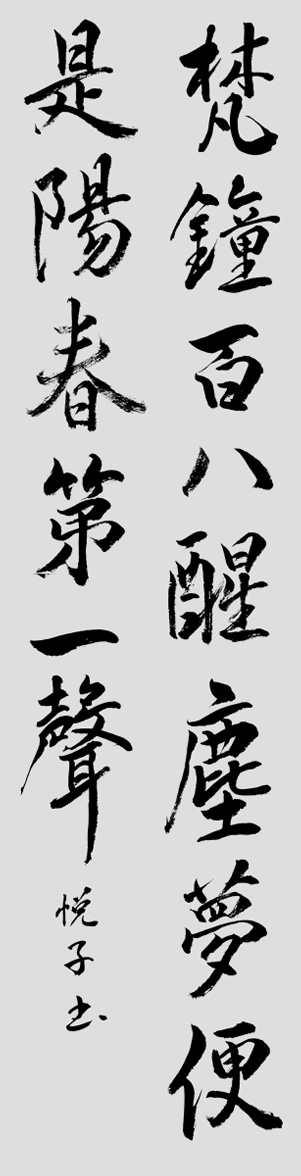 梵鐘百八醒塵夢便
是陽春第一聲
悦子书